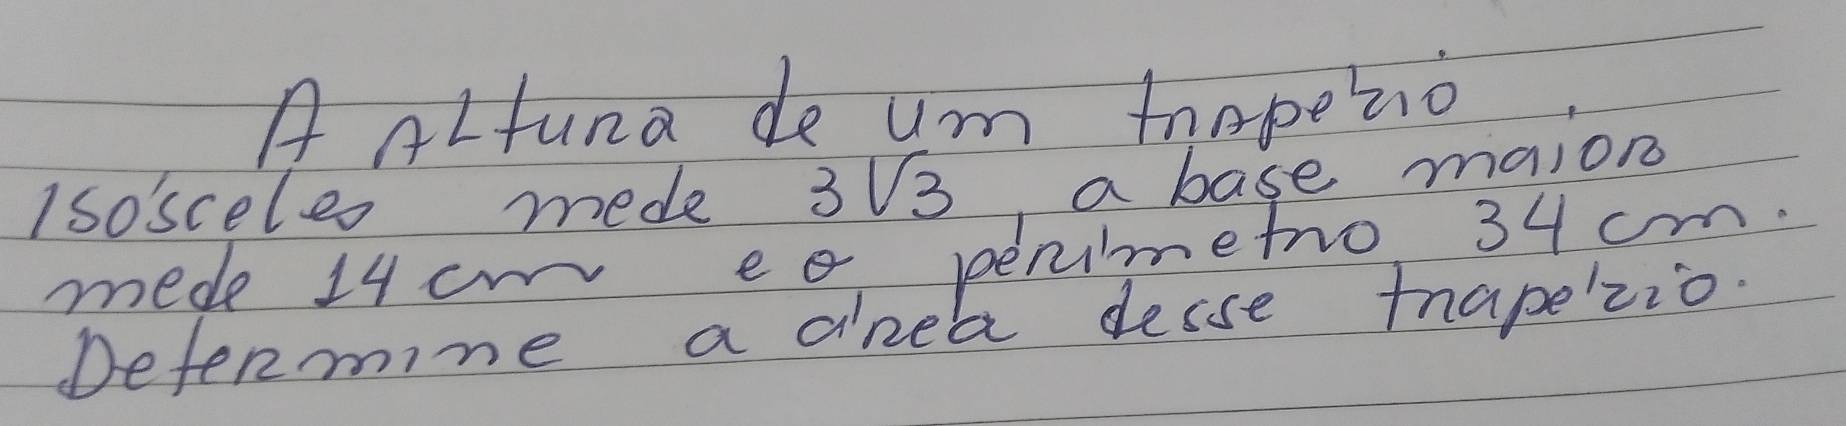 A Altura de um trapézio
isósceles mede 3√3, a base maior
mede 14 cm e o périmetro 34 cm.
Determine a área desse trapézio.